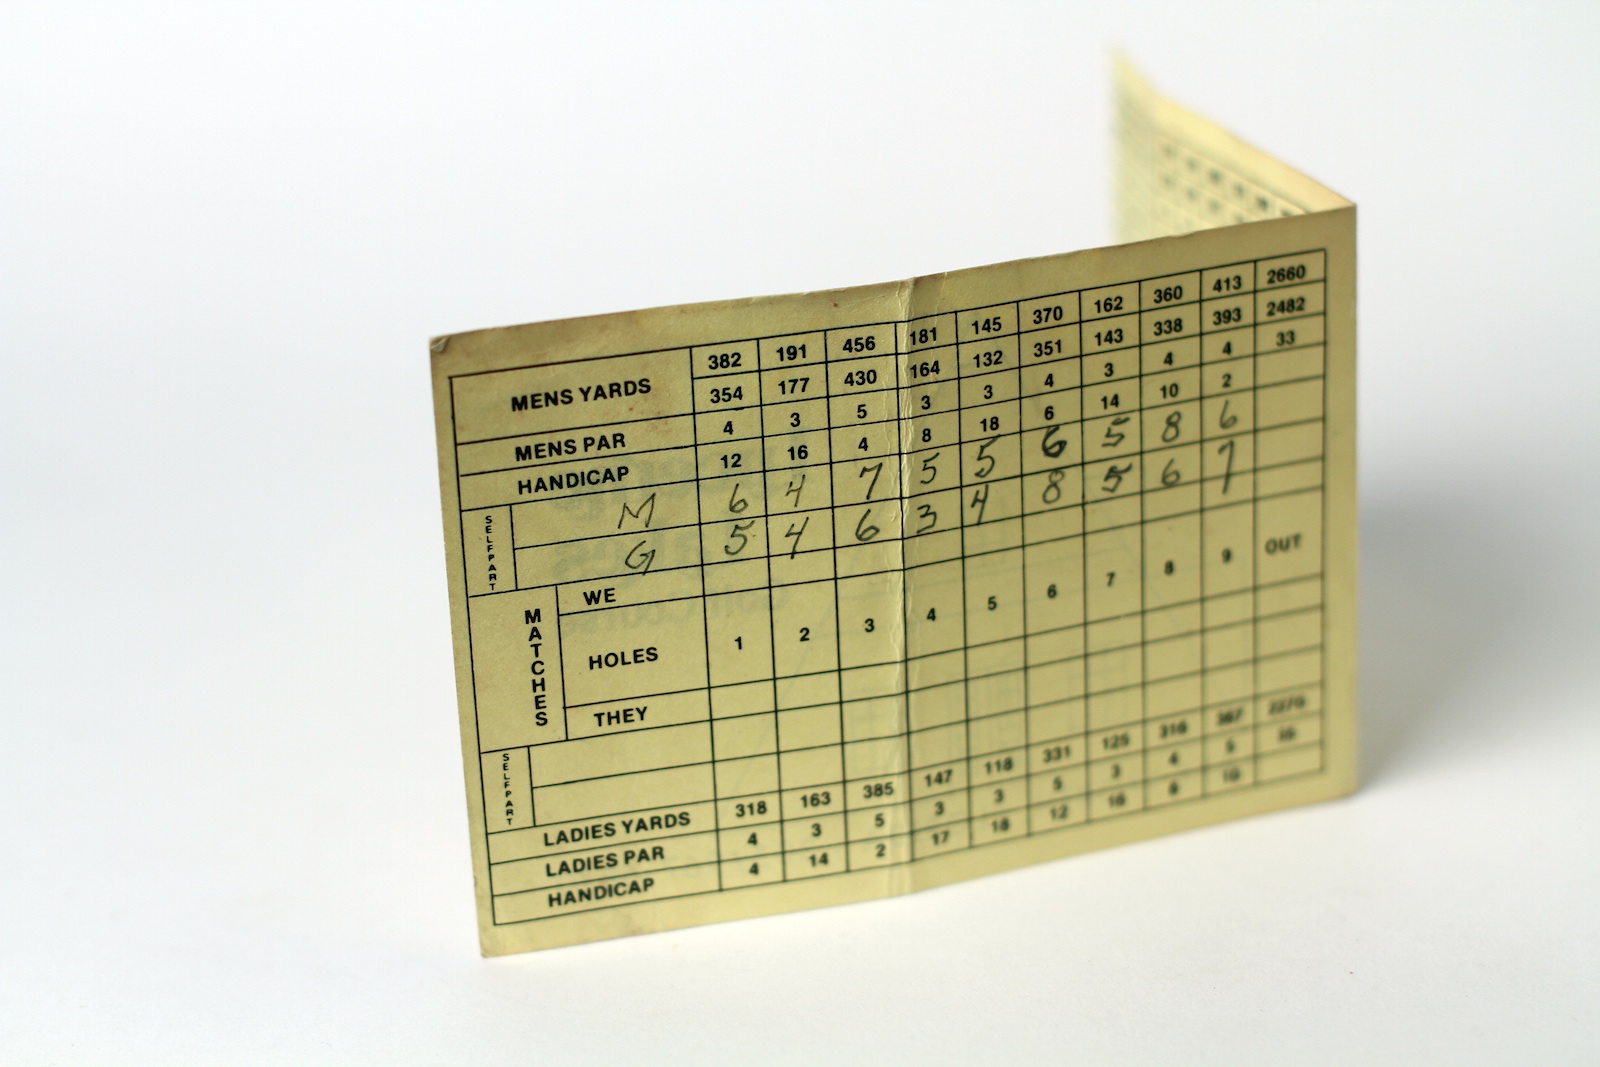 MENS YARDS 382 191 456 181 145 370 162 360 413 2660
354 177 430 164 132 351 143 338 393 2482
MENS PAR 4 3 5 3 3 4 3 4 4 33
HANDICAP 12 16 4 8 18 6 14 10 2
SELFPART
M 6 4 7 5 5 6 5 8 6
G 5 4 6 3 4 8 5 6 7
MATCHES
WE
HOLES 1 2 3 4 5 6 7 8 9 OUT
THEY
SELFPART
LADIES YARDS 318 163 385 147 118 331 125 316 367 2270
LADIES PAR 4 3 5 3 3 5 3 4 5
HANDICAP 4 14 2 17 18 12 16 8